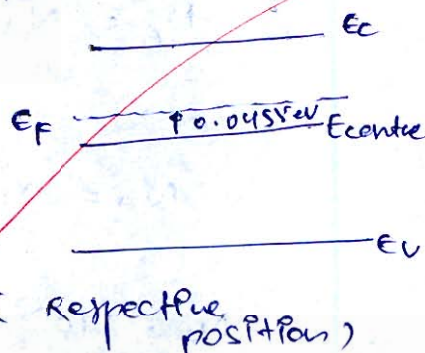 Ec
EF
0.0455eV Ecentre
Ev
( Respective
position)